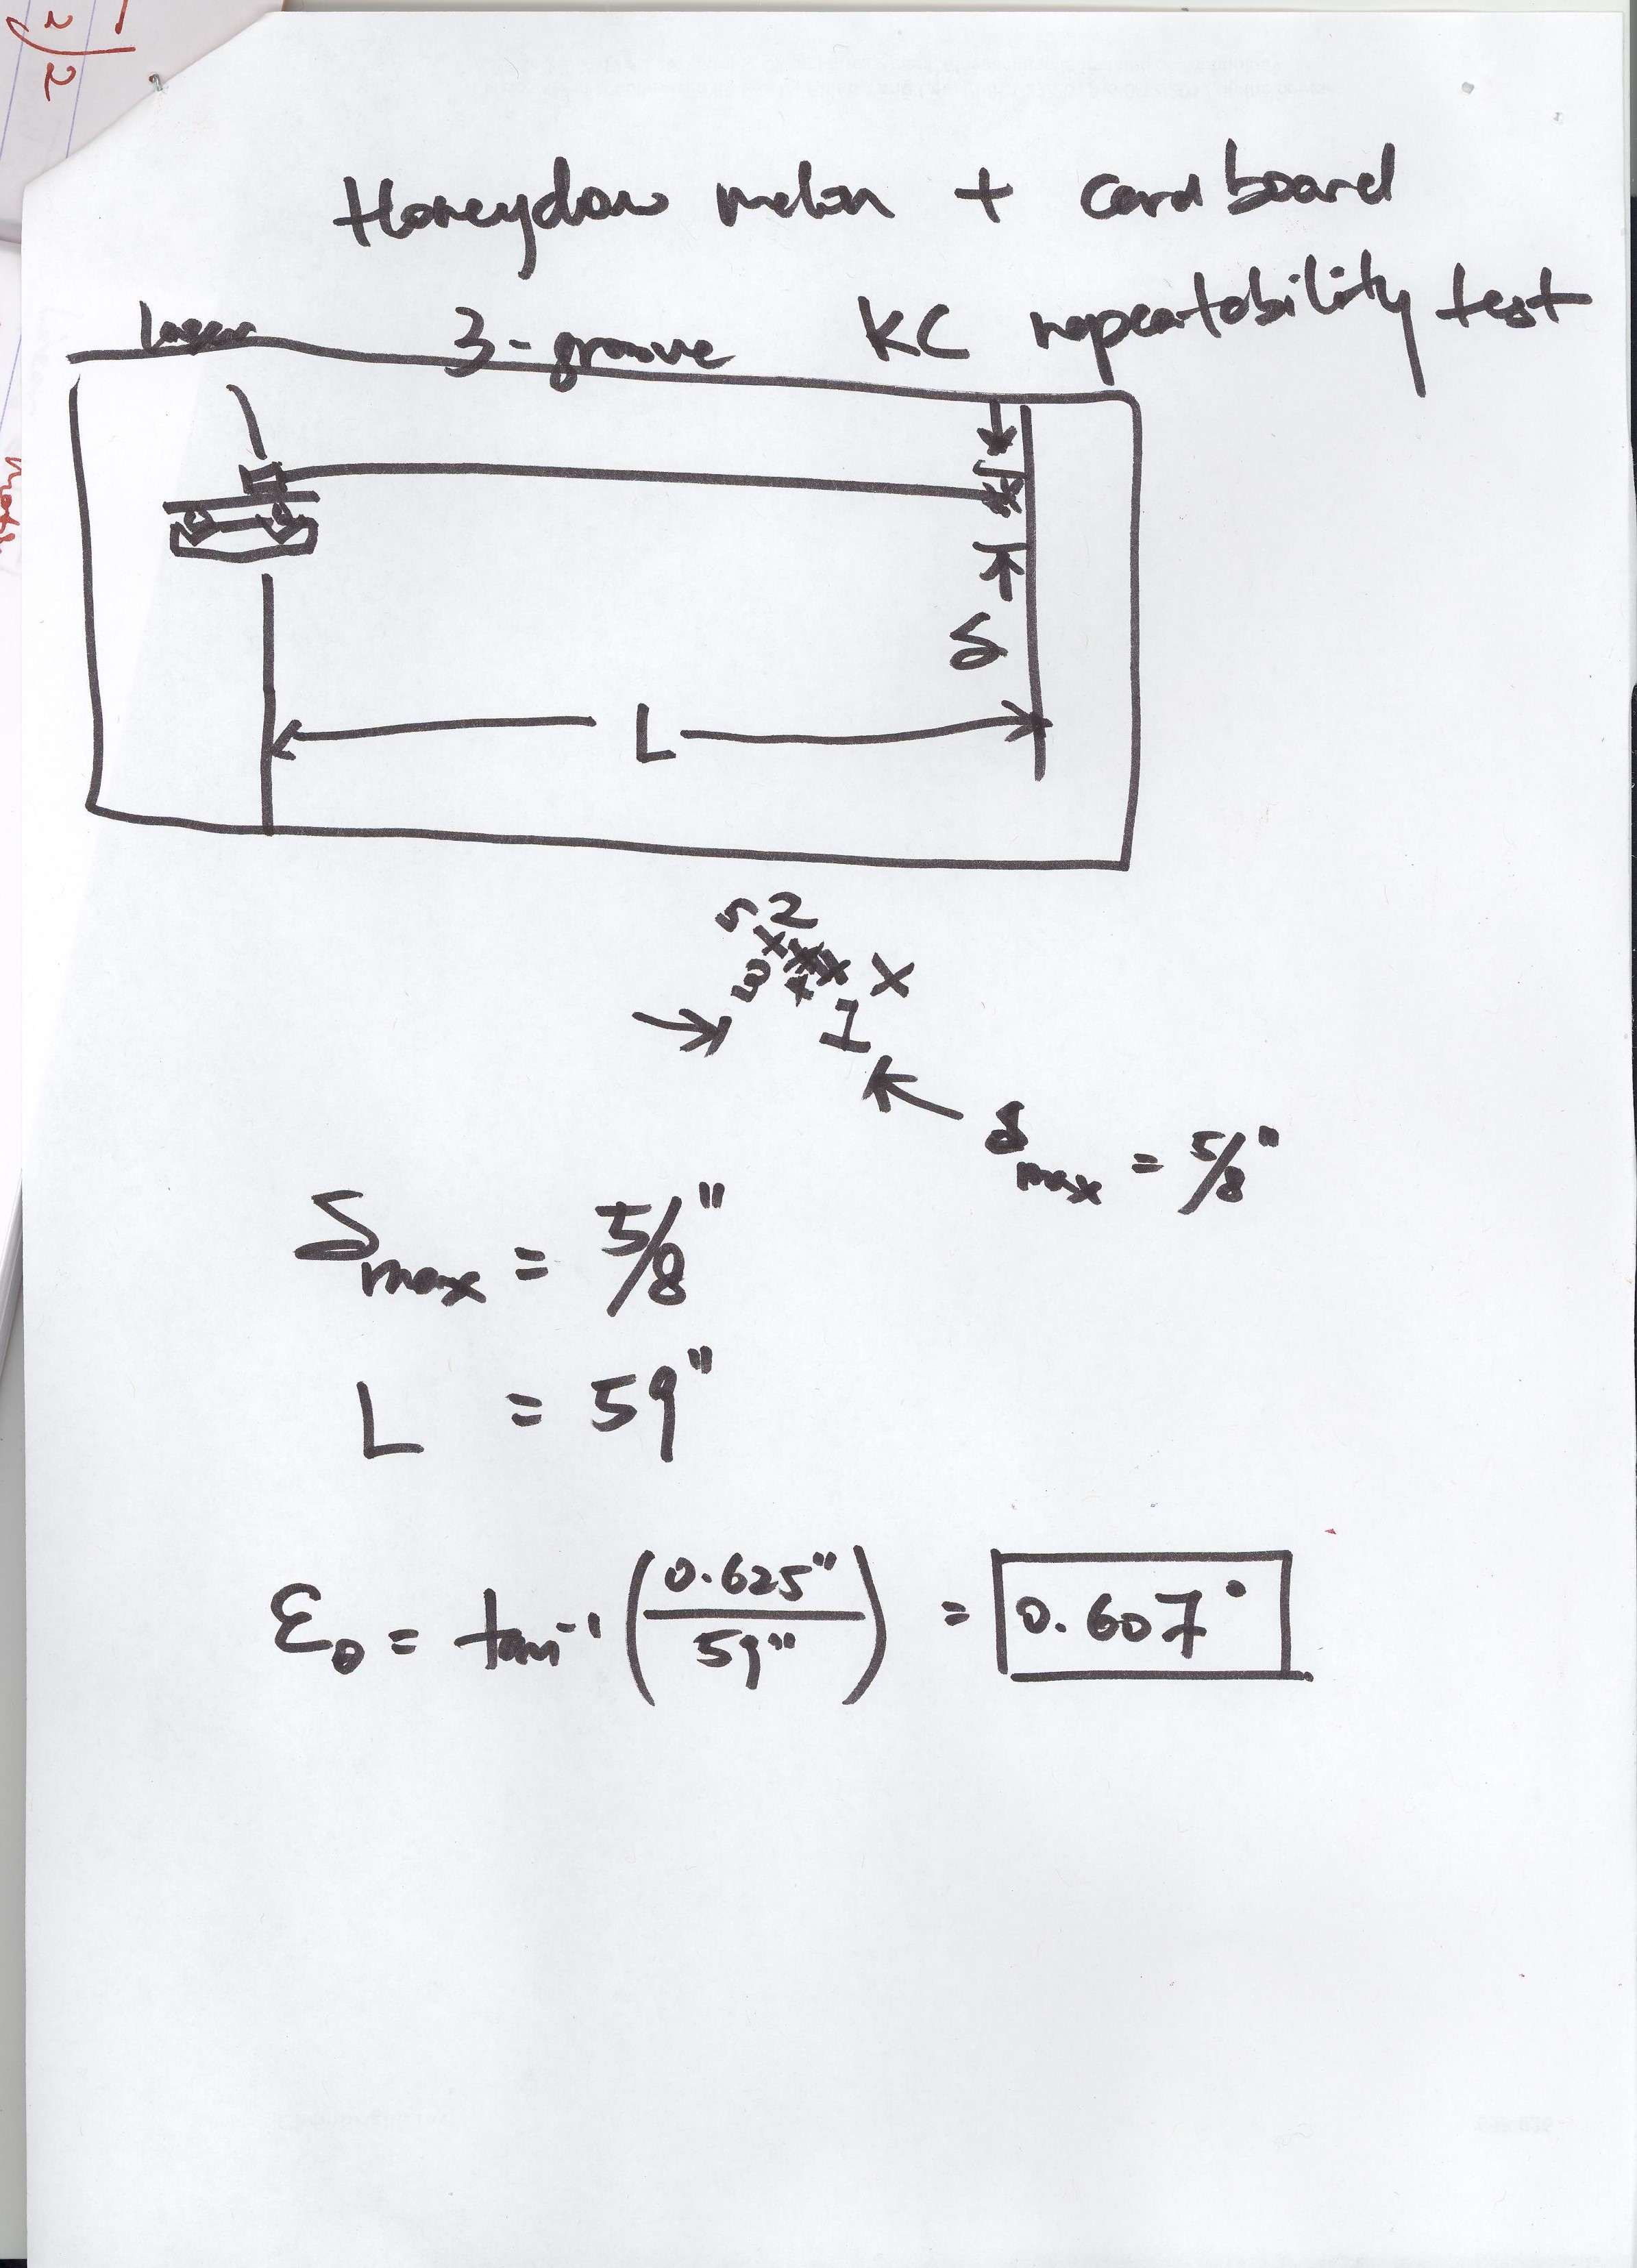 Honeydew melon + cardboard
Laser 3-groove KC repeatability test
δ
L
5 2
3 4
1
δmax = 5/8"
δmax = 5/8"
L = 59"
εθ = tan⁻¹ (0.625" / 59") = 0.607°